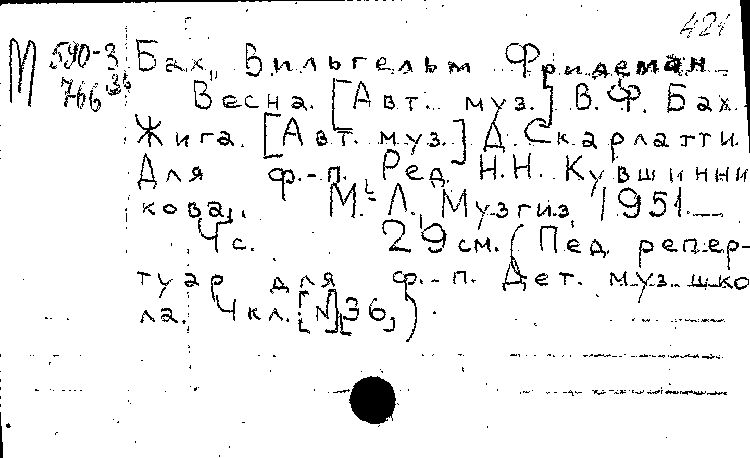 421
М 590-3 Бах, Вильгельм Фридеман
766 36 Весна. [Авт. муз.] В.Ф. Бах
Жига. [Авт. муз.] Д. Скарлатти.
Для ф.-п. Ред. Н.Н. Кувшинни
кова. М.-Л., Музгиз, 1951.
4 с. 29 см. (Пед. репер-
туар для ф.-п. Дет. муз. шко
ла. 4 кл. [N] 36,)